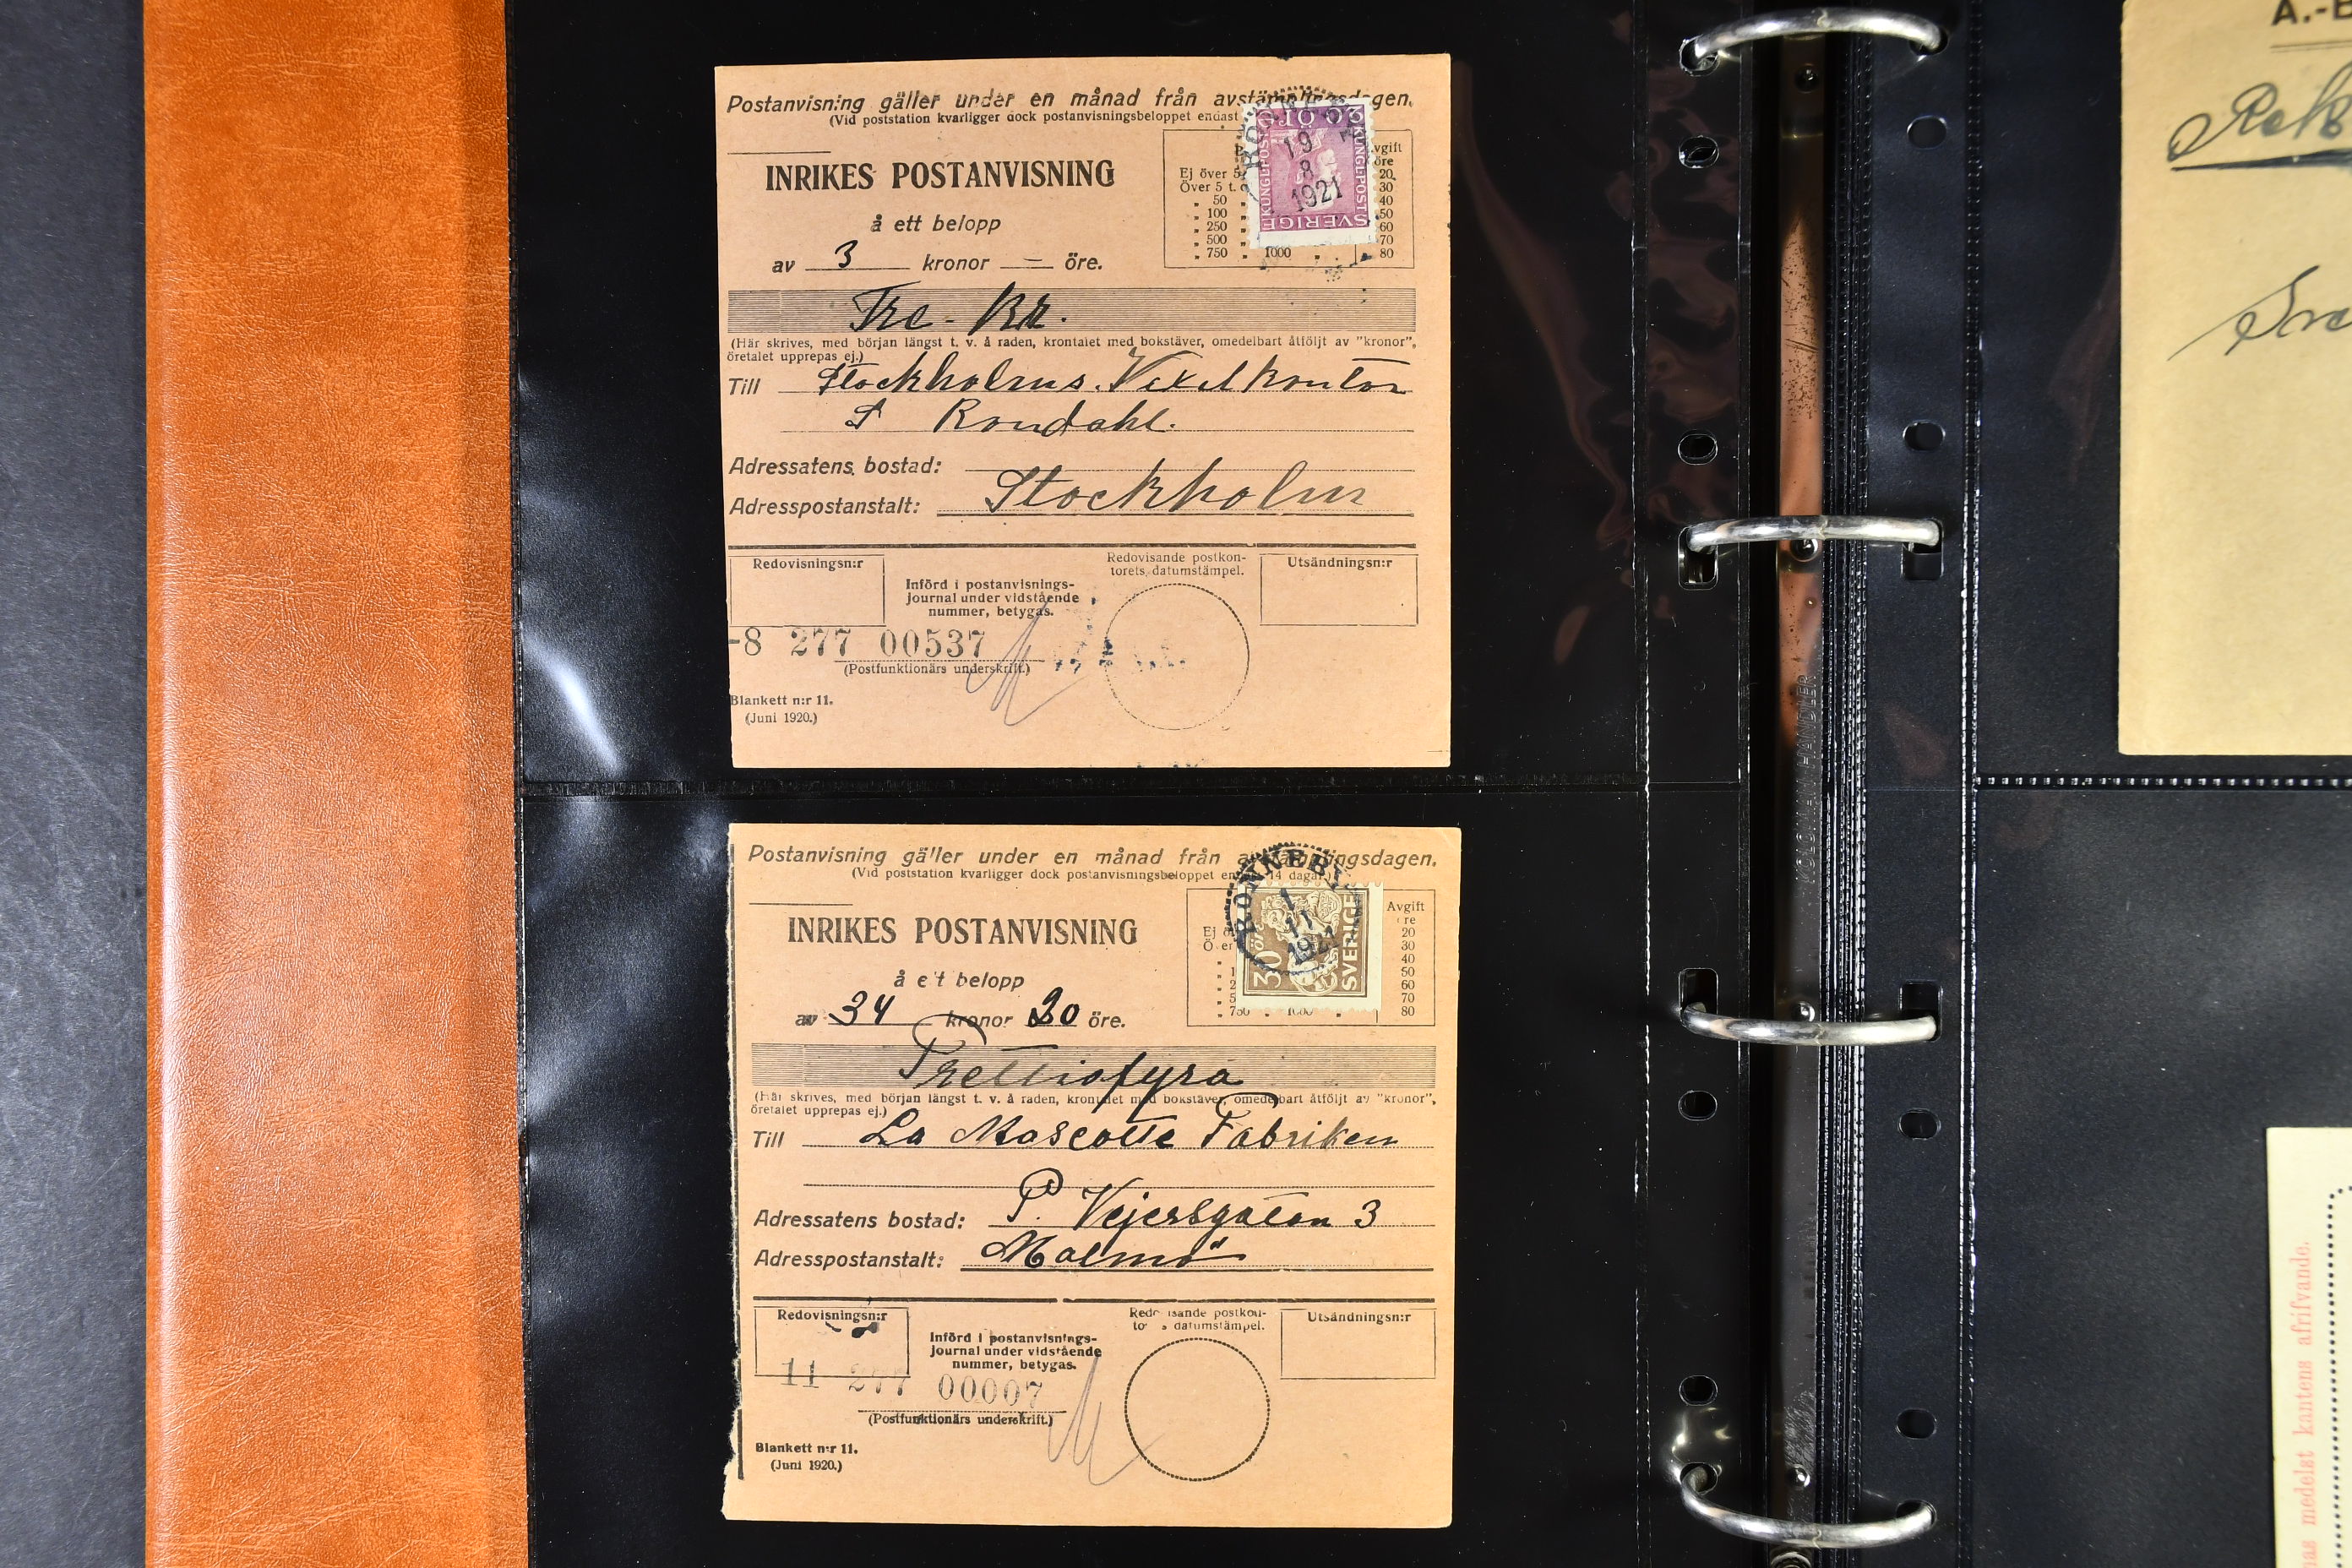 Postanvisning gäller under en månad från avstämplingsdagen.
(Vid poststation kvarligger dock postanvisningsbeloppet endast
INRIKES POSTANVISNING
å ett belopp
av 3 kronor — öre.
Avgift
öre
Ej över 5 20
Över 5 t. 30
" 50 40
" 100 50
" 250 60
" 500 70
" 750 " 1000 " 80
20 ÖRE
KUNGL. POST
SVERIGE
19
8
1921
Tre - Kr.
(Här skrives, med början längst t. v. å raden, krontalet med bokstäver, omedelbart åtföljt av "kronor",
öretalet upprepas ej.)
Till Stockholms Vexelkontor
S Rondahl.
Adressatens bostad:
Adresspostanstalt: Stockholm
Redovisningsn:r
Införd i postanvisnings-
journal under vidstående
nummer, betygas.
Redovisande postkon-
torets datumstämpel.
Utsändningsn:r
-8 277 00537
(Postfunktionärs underskrift.)
Blankett n:r 11.
(Juni 1920.)
Postanvisning gäller under en månad från avstämplingsdagen.
(Vid poststation kvarligger dock postanvisningsbeloppet endast 14 dagar.)
INRIKES POSTANVISNING
å ett belopp
av 34 kronor 20 öre.
Avgift
öre
20
30
40
50
60
70
" 750 " 1000 " 80
RONNEBY
1
11
1921
30 öre
SVERIGE
Trettiofyra
(Här skrives, med början längst t. v. å raden, krontalet med bokstäver, omedelbart åtföljt av "kronor",
öretalet upprepas ej.)
Till La Mascotte Fabriken
Adressatens bostad: P. Vejersgatan 3
Adresspostanstalt: Malmö
Redovisningsn:r
Införd i postanvisnings-
journal under vidstående
nummer, betygas.
Redovisande postkon-
torets datumstämpel.
Utsändningsn:r
11 277 00007
(Postfunktionärs underskrift.)
Blankett n:r 11.
(Juni 1920.)
A.-B
Rek
medelst kantens afrifvande.